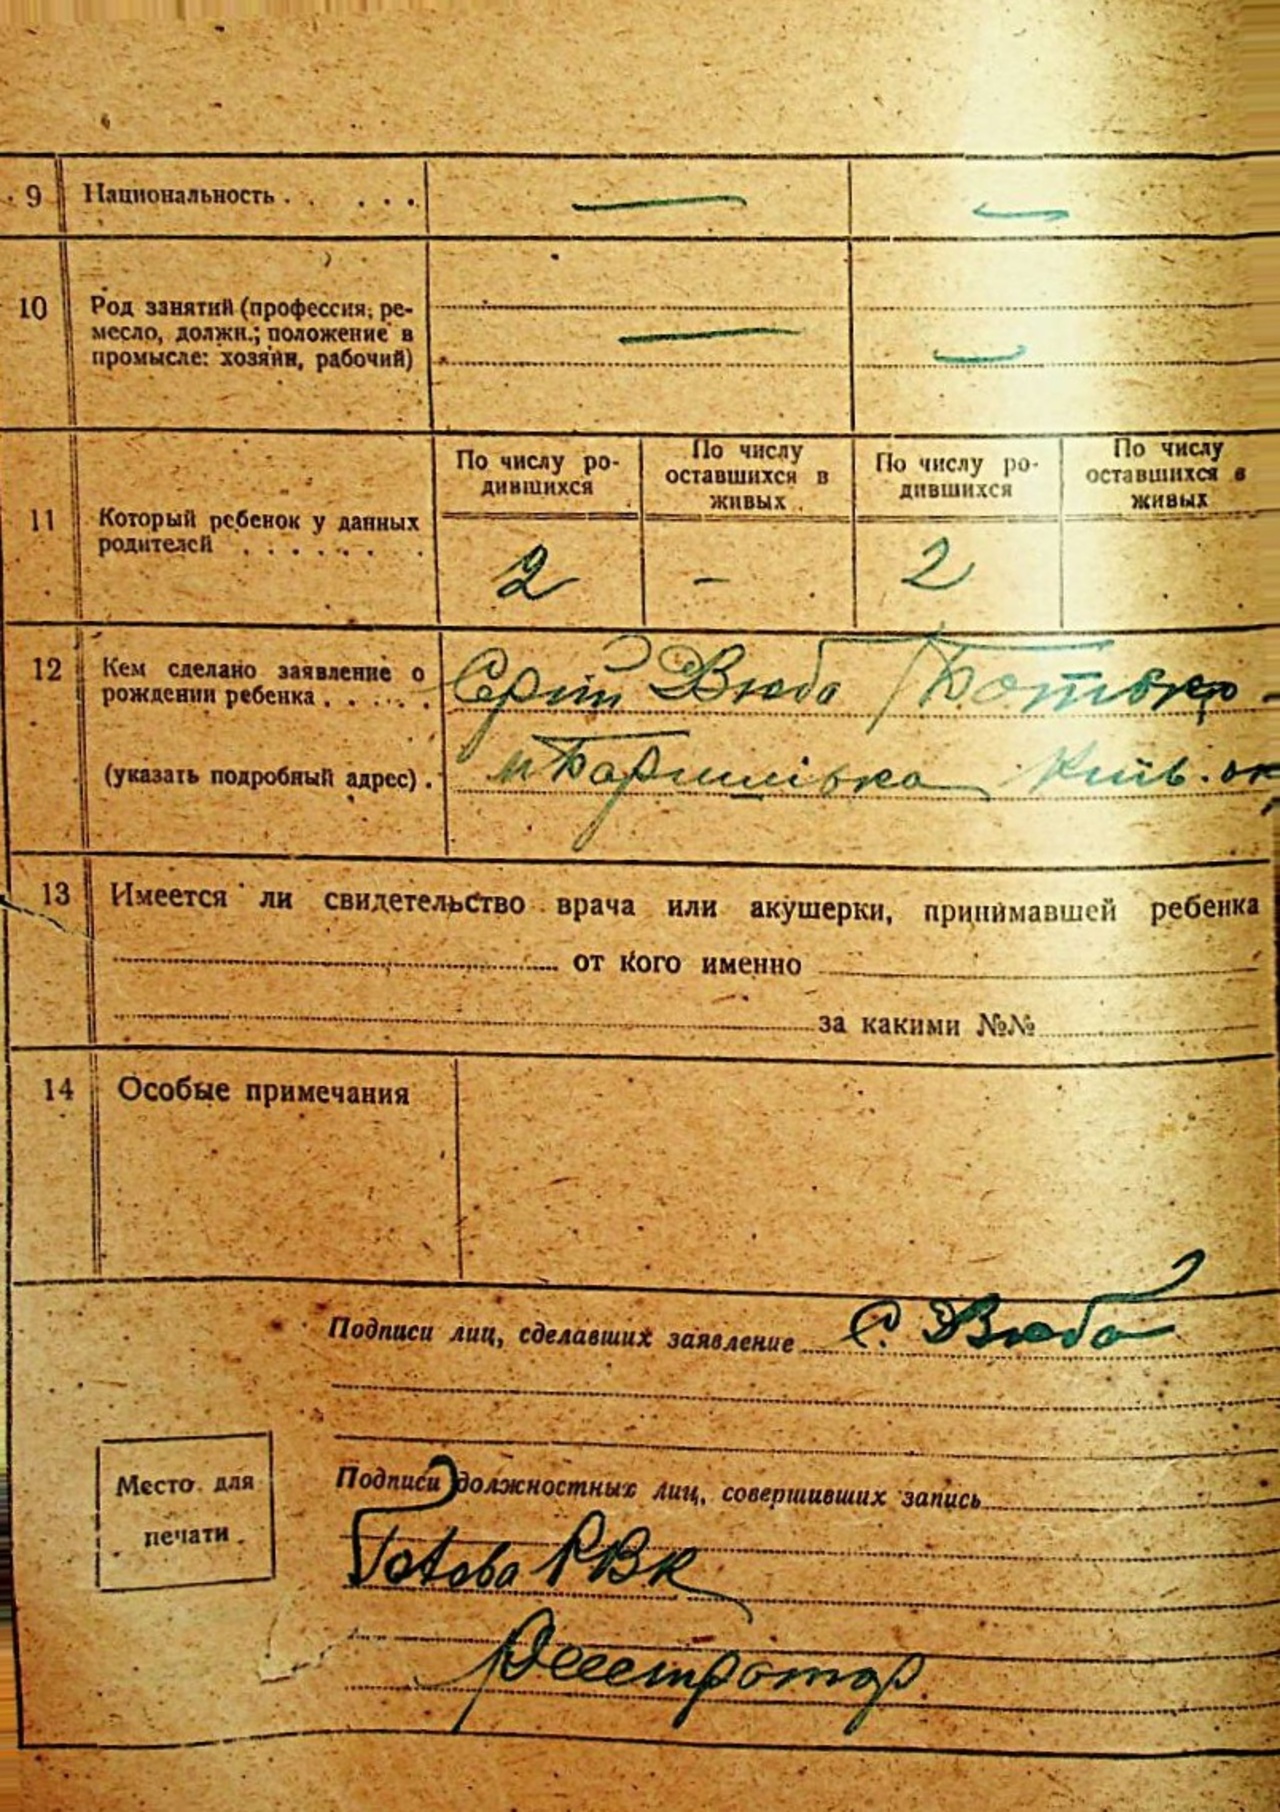 9 Национальность . . . . . — —
10 Род занятий (профессия, ре-
месло, должн.; положение в — —
промысле: хозяин, рабочий)
По числу ро-
дившихся
По числу
оставшихся в
живых
По числу ро-
дившихся
По числу
оставшихся в
живых
11 Который ребенок у данных
родителей . . . . . . . 2 - 2
12 Кем сделано заявление о
рождении ребенка . . . . . Сергій Дзюба /Батько
(указать подробный адрес) . м Баришівка Київ. ок
13 Имеется ли свидетельство врача или акушерки, принимавшей ребенка
от кого именно
за какими №№
14 Особые примечания
Подписи лиц, сделавших заявление С. Дзюба
Место для
печати
Подписи должностных лиц, совершивших запись
Голова РВК
Реєстратор